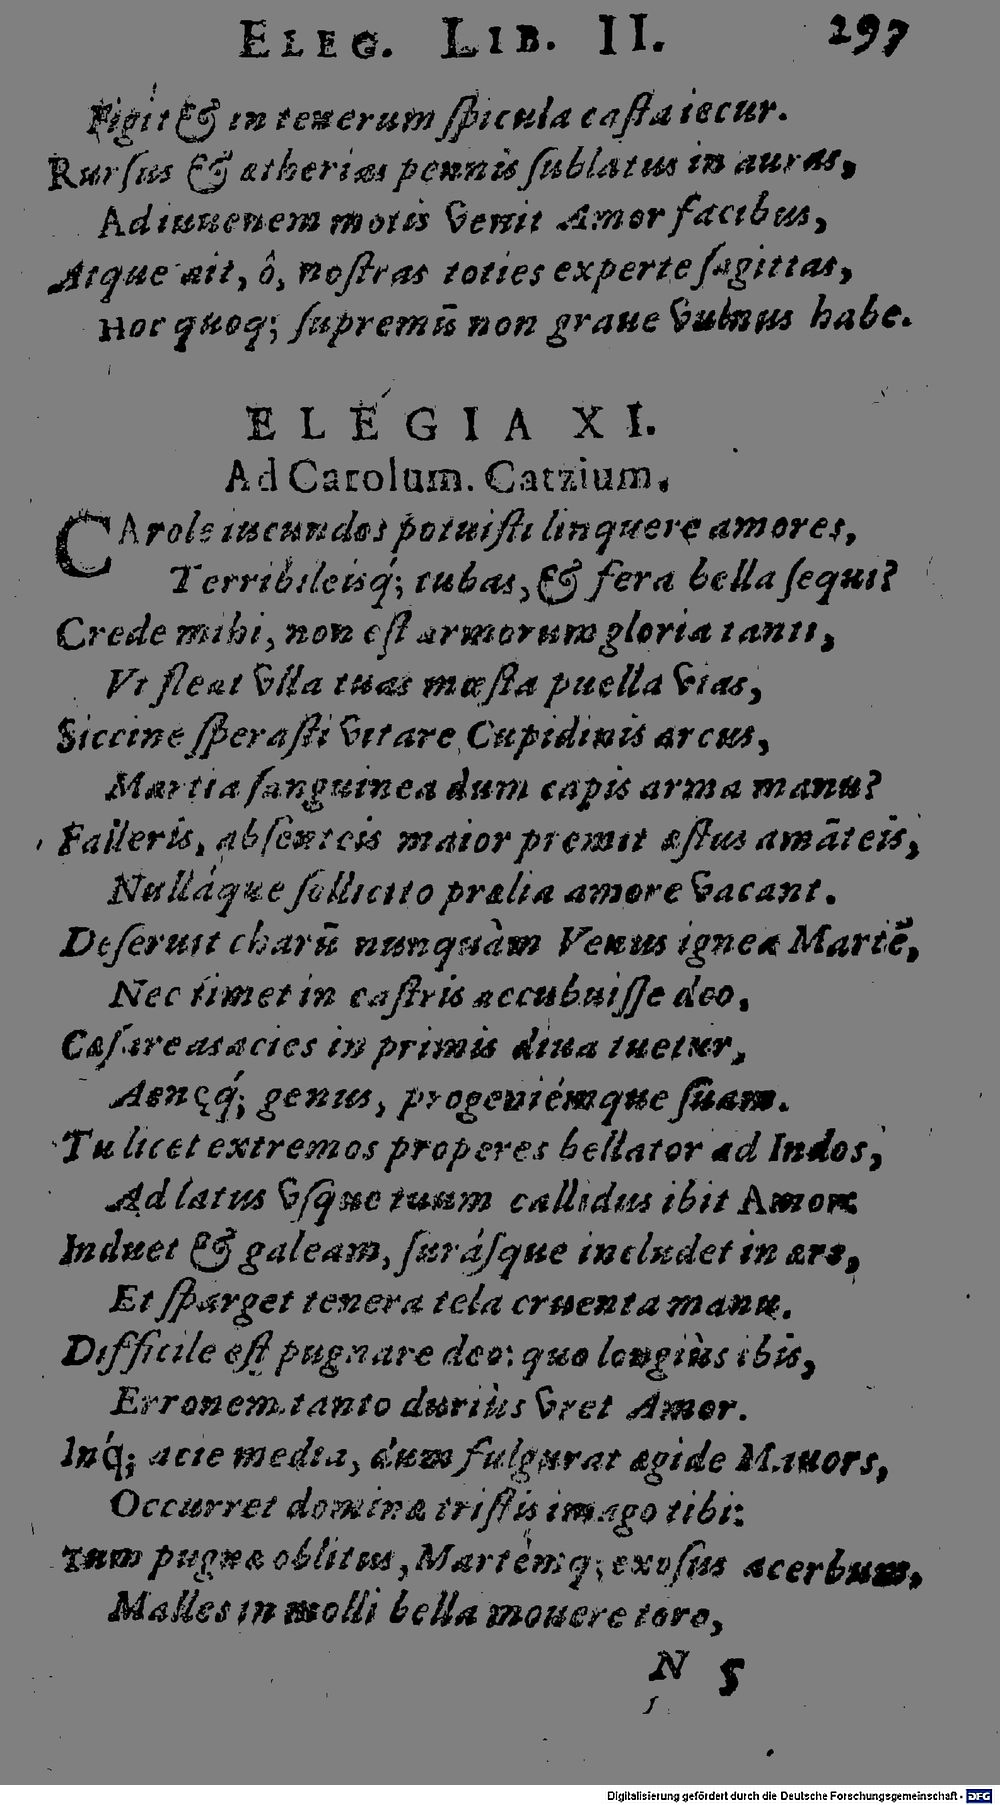 ELEG. LIB. II. 297
Figit & in tenerum ſpicula caſta iecur.
Rurſus & ætherias pennis ſublatus in auras,
Ad iuuenem motis venit Amor facibus,
Atque ait, ô, noſtras toties experte ſagittas,
Hoc quoq; ſupremū non graue vulnus habe.
ELEGIA XI.
Ad Carolum. Catzium.
CArole iucundos potuiſti linquere amores,
Terribileisq́; tubas, & fera bella ſequi?
Crede mihi, non eſt armorum gloria tanti,
Vt fleat vlla tuas mœſta puella vias,
Siccine ſperaſti vitare Cupidinis arcus,
Martia ſanguinea dum capis arma manu?
Falleris, abſenteis maior premit æſtus amāteis,
Nulláque ſollicito prælia amore vacant.
Deſeruit charū nunquàm Venus ignea Martē,
Nec timet in caſtris accubuiſſe deo,
Cæſareas acies in primis diua tuetur,
Aeneęq́; genus, progeniémque ſuam.
Tu licet extremos properes bellator ad Indos,
Ad latus vſque tuum callidus ibit Amor:
Induet & galeam, ſuráſque includet in ære,
Et ſparget tenera tela cruenta manu.
Difficile eſt pugnare deo: quo longiùs ibis,
Erronem tanto duriùs vret Amor.
Inq́; acie media, dum fulgurat ægide Mauors,
Occurret dominæ triſtis imago tibi:
Tum pugnæ oblitus, Martémq; exoſus acerbum,
Malles in molli bella mouere toro,
N 5
Digitalisierung gefördert durch die Deutsche Forschungsgemeinschaft - DFG